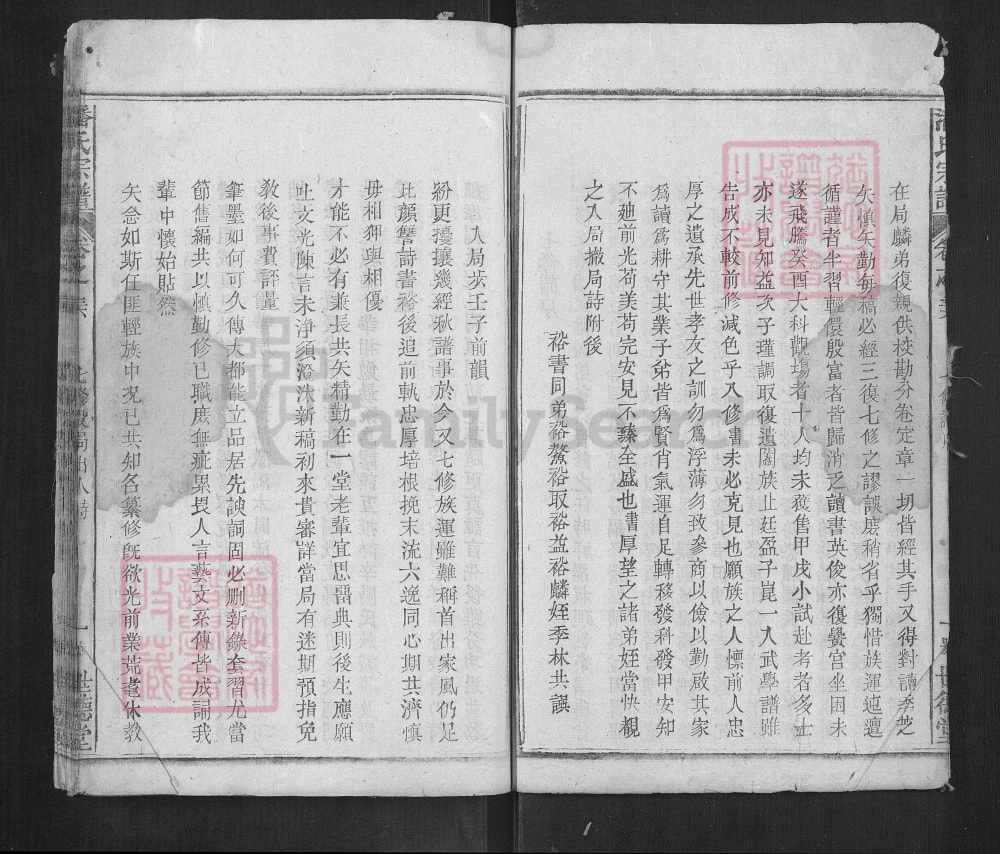 在局麟弟復親供校勘分卷定章一切皆經其手又得對讀季芝
矢慎矢勤每稿必經三復七修之謬誤庶稍省乎獨惜族運迍邅
循謹者半習輕儇殷富者皆歸消乏讀書英俊亦復黌宮坐困未
遂飛騰癸酉大科觀場者十人均未獲售甲戌小試赴考者多士
亦未見知益次子瑾調取復遺閤族止廷盈子崑一入武學譜雖
告成不較前修減色乎入修書未必克見也願族之人懍前人忠
厚之遺承先世孝友之訓勿爲浮薄勿致參商以儉以勤啟其家
爲讀爲耕守其業子弟皆爲賢肖氣運自足轉移發科發甲安知
不廸前光苟美苟完安見不臻全盛也書厚望之諸弟姪當快覩
之入局撤局詩附後
裕書同弟裕鰲裕取裕益裕麟姪季林共譔
入局步壬子前韻
紛更擾攘幾經秋譜事於今又七修族運雖難稱首出家風仍足
比顏讐詩書裕後追前軌忠厚培根挽末流六逸同心期共濟慎
毋相狎與相優
才能不必有兼長共矢精勤在一堂老輩宜思畱典則後生應願
吐文光陳言未淨須洮汰新福初來貴審詳當局有迷期預指免
敎後事費評量
筆墨如何可久傳大都能立品居先諛詞固必刪新錄套習尤當
節舊編共以慎勤修已職庶無疵累畏人言藝文系傳皆成誦我
輩中懷始貼然
矢念如斯任匪輕族中況已共知名纂修旣欲光前業荒耄休敎
潘氏宗譜
世德堂